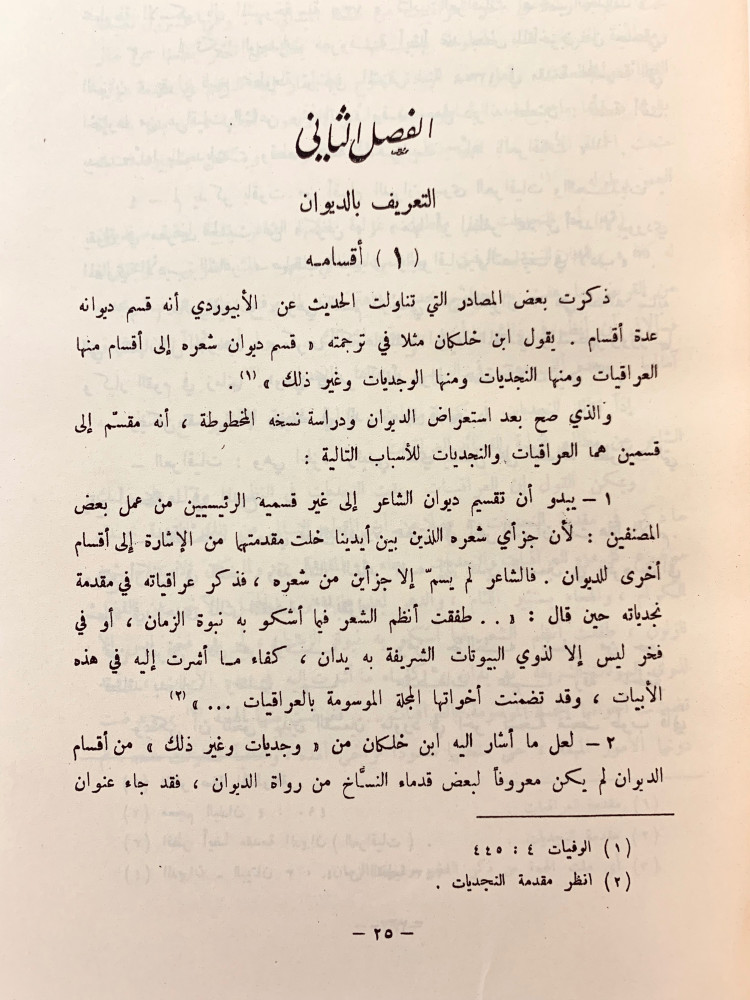 الفصل الثاني
التعريف بالديوان
( ١ ) أقسامـه
ذكرت بعض المصادر التي تناولت الحديث عن الأبيوردي أنه قسم ديوانه
عدة أقسام . يقول ابن خلكان مثلا في ترجمته « قسم ديوان شعره إلى أقسام منها
العراقيات ومنها النجديات ومنها الوجديات وغير ذلك » (١) .
والذي صح بعد استعراض الديوان ودراسة نسخه المخطوطة ، أنه مقسّم إلى
قسمين هما العراقيات والنجديات للأسباب التالية :
١ – يبدو أن تقسيم ديوان الشاعر إلى غير قسميه الرئيسيين من عمل بعض
المصنفين : لأن جزأي شعره اللذين بين أيدينا خلت مقدمتها من الإشارة إلى أقسام
أخرى للديوان . فالشاعر لم يسمّ إلا جزأين من شعره ، فذكر عراقياته في مقدمة
نجدياته حين قال : « .. طفقت أنظم الشعر فيما أشكو به نبوة الزمان ، أو في
فخر ليس إلا لذوي البيوتات الشريفة به يدان ، كفاء مـا أشرت إليه في هذه
الأبيات ، وقد تضمنت أخواتها المجلة الموسومة بالعراقيات ... » (٢)
٢ – لعل ما أشار اليه ابن خلكان من « وجديات وغير ذلك » من أقسام
الديوان لم يكن معروفاً لبعض قدماء النسَّاخ من رواة الديوان ، فقد جاء عنوان
(١) الوفيات ٤ : ٤٤٥
(٢) انظر مقدمة النجديات .
– ٢٥ –